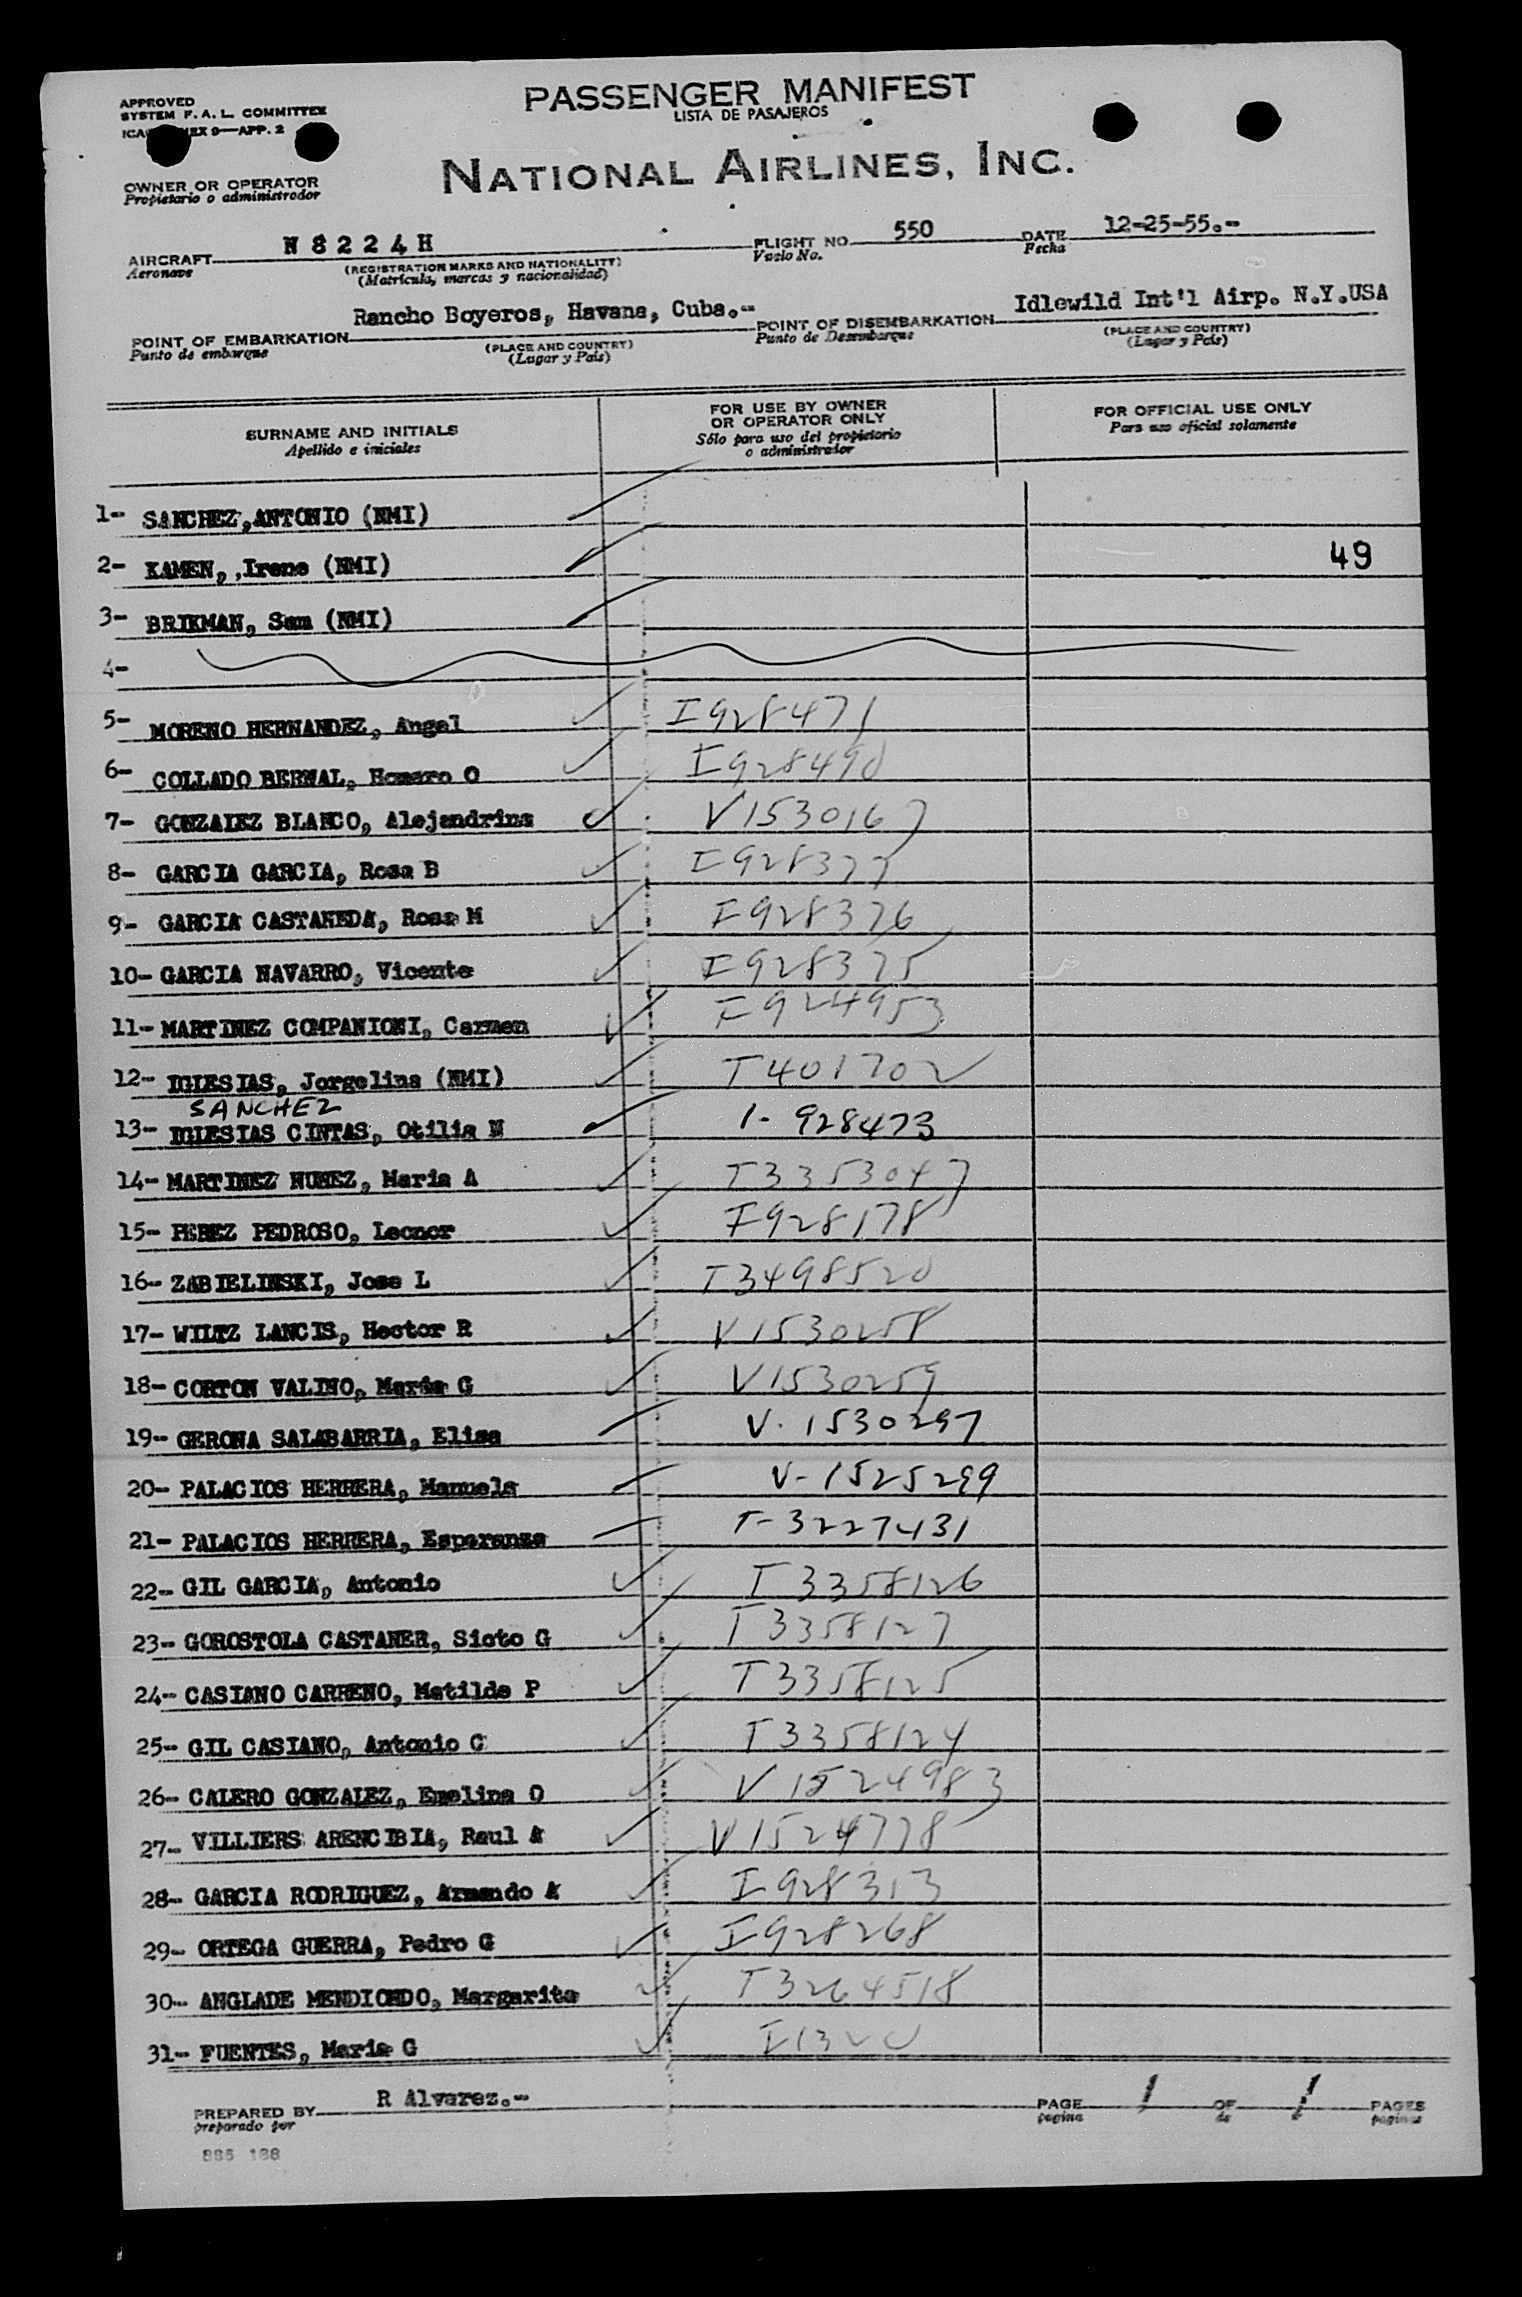 APPROVED
SYSTEM F. A. L. COMMITTEE
9—APP. 2
PASSENGER MANIFEST
LISTA DE PASAJEROS
NATIONAL AIRLINES, INC.
OWNER OR OPERATOR
Propietario o administrador
AIRCRAFT N 8 2 2 4 H FLIGHT NO. 550 DATE 12-25-55.-
Aeronave (REGISTRATION MARKS AND NATIONALITY) Vuelo No. Fecha
(Matricula, marcas y nacionalidad)
POINT OF EMBARKATION Rancho Boyeros, Havana, Cuba.- POINT OF DISEMBARKATION Idlewild Int'l Airp. N.Y.USA
Punto de embarque (PLACE AND COUNTRY) Punto de Desembarque (PLACE AND COUNTRY)
(Lugar y País) (Lugar y País)
SURNAME AND INITIALS
Apellido e iniciales
FOR USE BY OWNER
OR OPERATOR ONLY
Sólo para uso del propietario
o administrador
FOR OFFICIAL USE ONLY
Para uso oficial solamente
1- SANCHEZ, ANTONIO (NMI)
2- KAMEN, ,Irene (NMI) 49
3- BRIKMAN, Sam (NMI)
4-
5- MORENO HERNANDEZ, Angel I928471
6- COLLADO BERNAL, Homaro O I928490
7- GONZALEZ BLANCO, Alejandrina V1530167
8- GARCIA GARCIA, Rosa B I928377
9- GARCIA CASTANEDA, Rosa M I928376
10- GARCIA NAVARRO, Vicente I928375
11- MARTINEZ COMPANIONI, Carmen I924953
12- IGLESIAS, Jorgelina (NMI) T401702
SANCHEZ
13- IGLESIAS CINTAS, Otilia M I- 928473
14- MARTINEZ NUNEZ, Maria A T3353047
15- PEREZ PEDROSO, Leonor I928178
16- ZABIELINSKI, Jose L T3498520
17- WILTZ LANCIS, Hector R V1530258
18- CORTON VALINO, Maria G V1530259
19- GERONA SALABARRIA, Elisa V. 1530297
20- PALACIOS HERRERA, Manuela V- 1525299
21- PALACIOS HERRERA, Esperanza T- 3227431
22- GIL GARCIA, Antonio T3358126
23- GOROSTOLA CASTANER, Sixto G T3358127
24- CASIANO CARRENO, Matilde P T3358125
25- GIL CASIANO, Antonio C T3358124
26- CALERO GONZALEZ, Emelina O V1524983
27- VILLIERS ARENCIBIA, Raul A V1524778
28- GARCIA RODRIGUEZ, Armando A I928313
29- ORTEGA GUERRA, Pedro G I928268
30- ANGLADE MENDIONDO, Margarita T3264518
31- FUENTES, Maria G
PREPARED BY R Alvarez.- PAGE 1 OF 1 PAGES
preparado por pagina de paginas